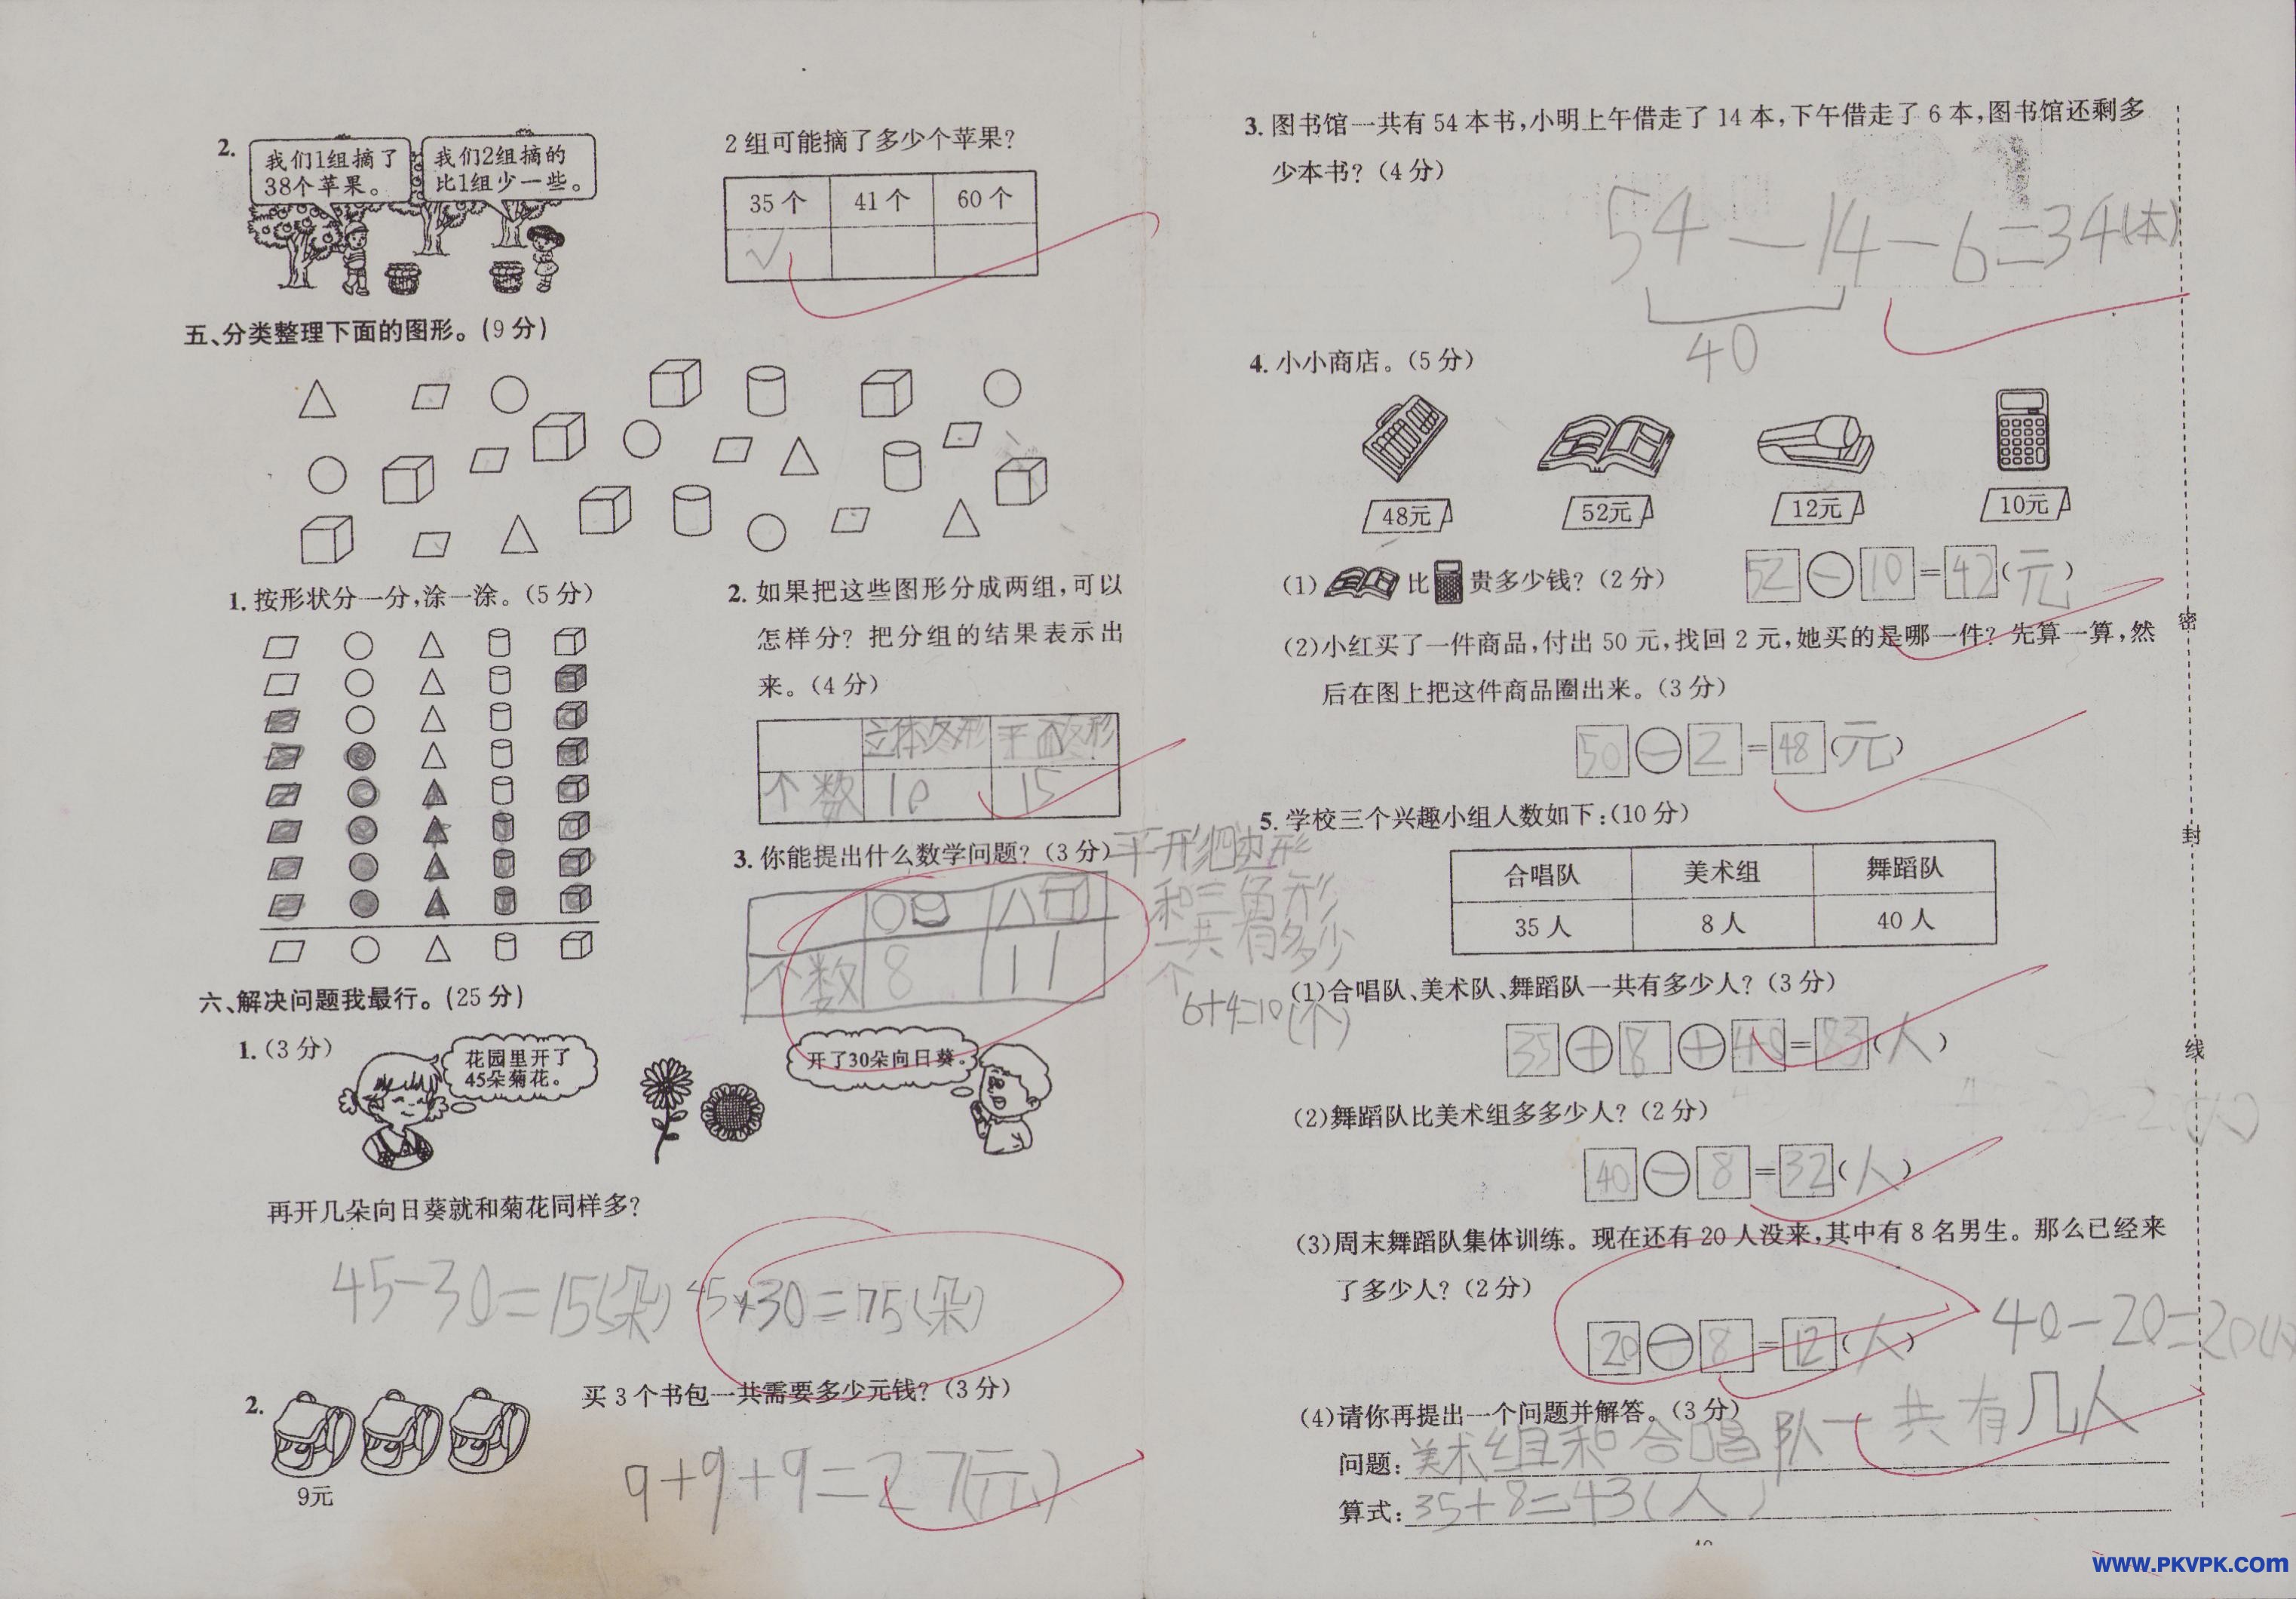 2.
我们1组摘了
38个苹果。
我们2组摘的
比1组少一些。
2组可能摘了多少个苹果?
35个 41个 60个
√
五、分类整理下面的图形。(9分)
1.按形状分一分,涂一涂。(5分)
2.如果把这些图形分成两组,可以
怎样分?把分组的结果表示出
来。(4分)
立体图形 平面图形
个数 10 15
3.你能提出什么数学问题?(3分)
个数 8 11
平形四边形
和三角形
一共有多少
个
6+4=10(个)
六、解决问题我最行。(25分)
1.(3分)
花园里开了
45朵菊花。
开了30朵向日葵。
再开几朵向日葵就和菊花同样多?
45-30=15(朵) 45+30=75(朵)
2.
9元
买3个书包一共需要多少元钱?(3分)
9+9+9=27(元)
3.图书馆一共有54本书,小明上午借走了14本,下午借走了6本,图书馆还剩多
少本书?(4分)
54-14-6=34(本)
40
4.小小商店。(5分)
48元 52元 12元 10元
(1) 比 贵多少钱?(2分) 52-10=42(元)
(2)小红买了一件商品,付出50元,找回2元,她买的是哪一件?先算一算,然
后在图上把这件商品圈出来。(3分)
50-2=48(元)
5.学校三个兴趣小组人数如下:(10分)
合唱队 美术组 舞蹈队
35人 8人 40人
(1)合唱队、美术队、舞蹈队一共有多少人?(3分)
35+8+40=83(人)
(2)舞蹈队比美术组多多少人?(2分)
40-8=32(人)
(3)周末舞蹈队集体训练。现在还有20人没来,其中有8名男生。那么已经来
了多少人?(2分)
20-8=12(人) 40-20=20(人)
(4)请你再提出一个问题并解答。(3分)
问题:美术组和合唱队一共有几人
算式:35+8=43(人)
密
封
线
www.PKVPK.com